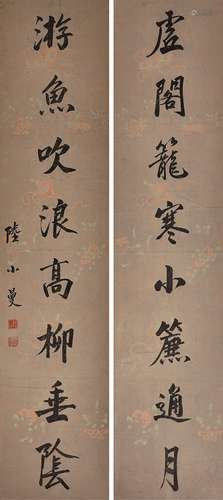 虛閣籠寒小簾通月
游魚吹浪高柳垂陰
陸小曼